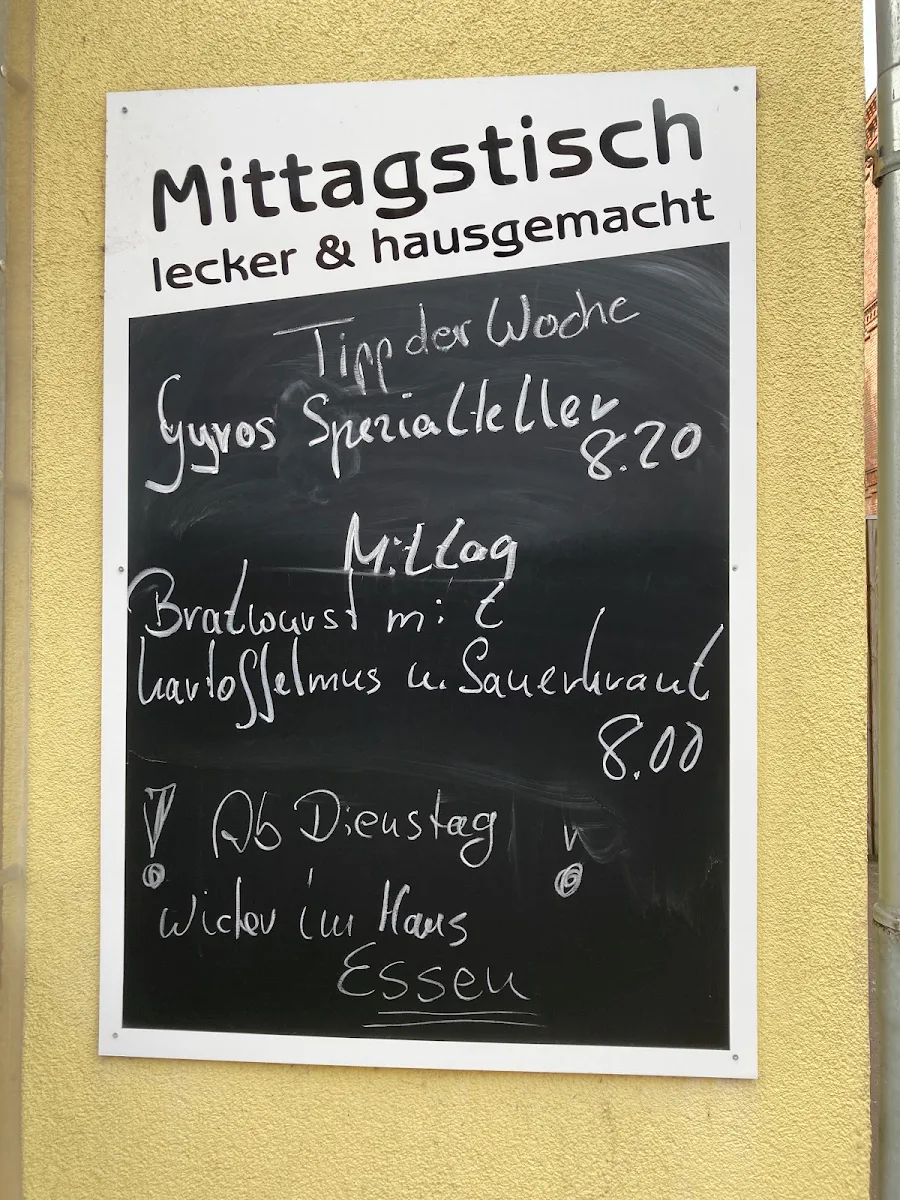 Mittagstisch
lecker & hausgemacht
Tipp der Woche
Gyros Spezialteller
8.20
Mittag
Bratwurst mit
Kartoffelmus u. Sauerkraut
8.00
! Ab Dienstag !
wieder im Haus
Essen